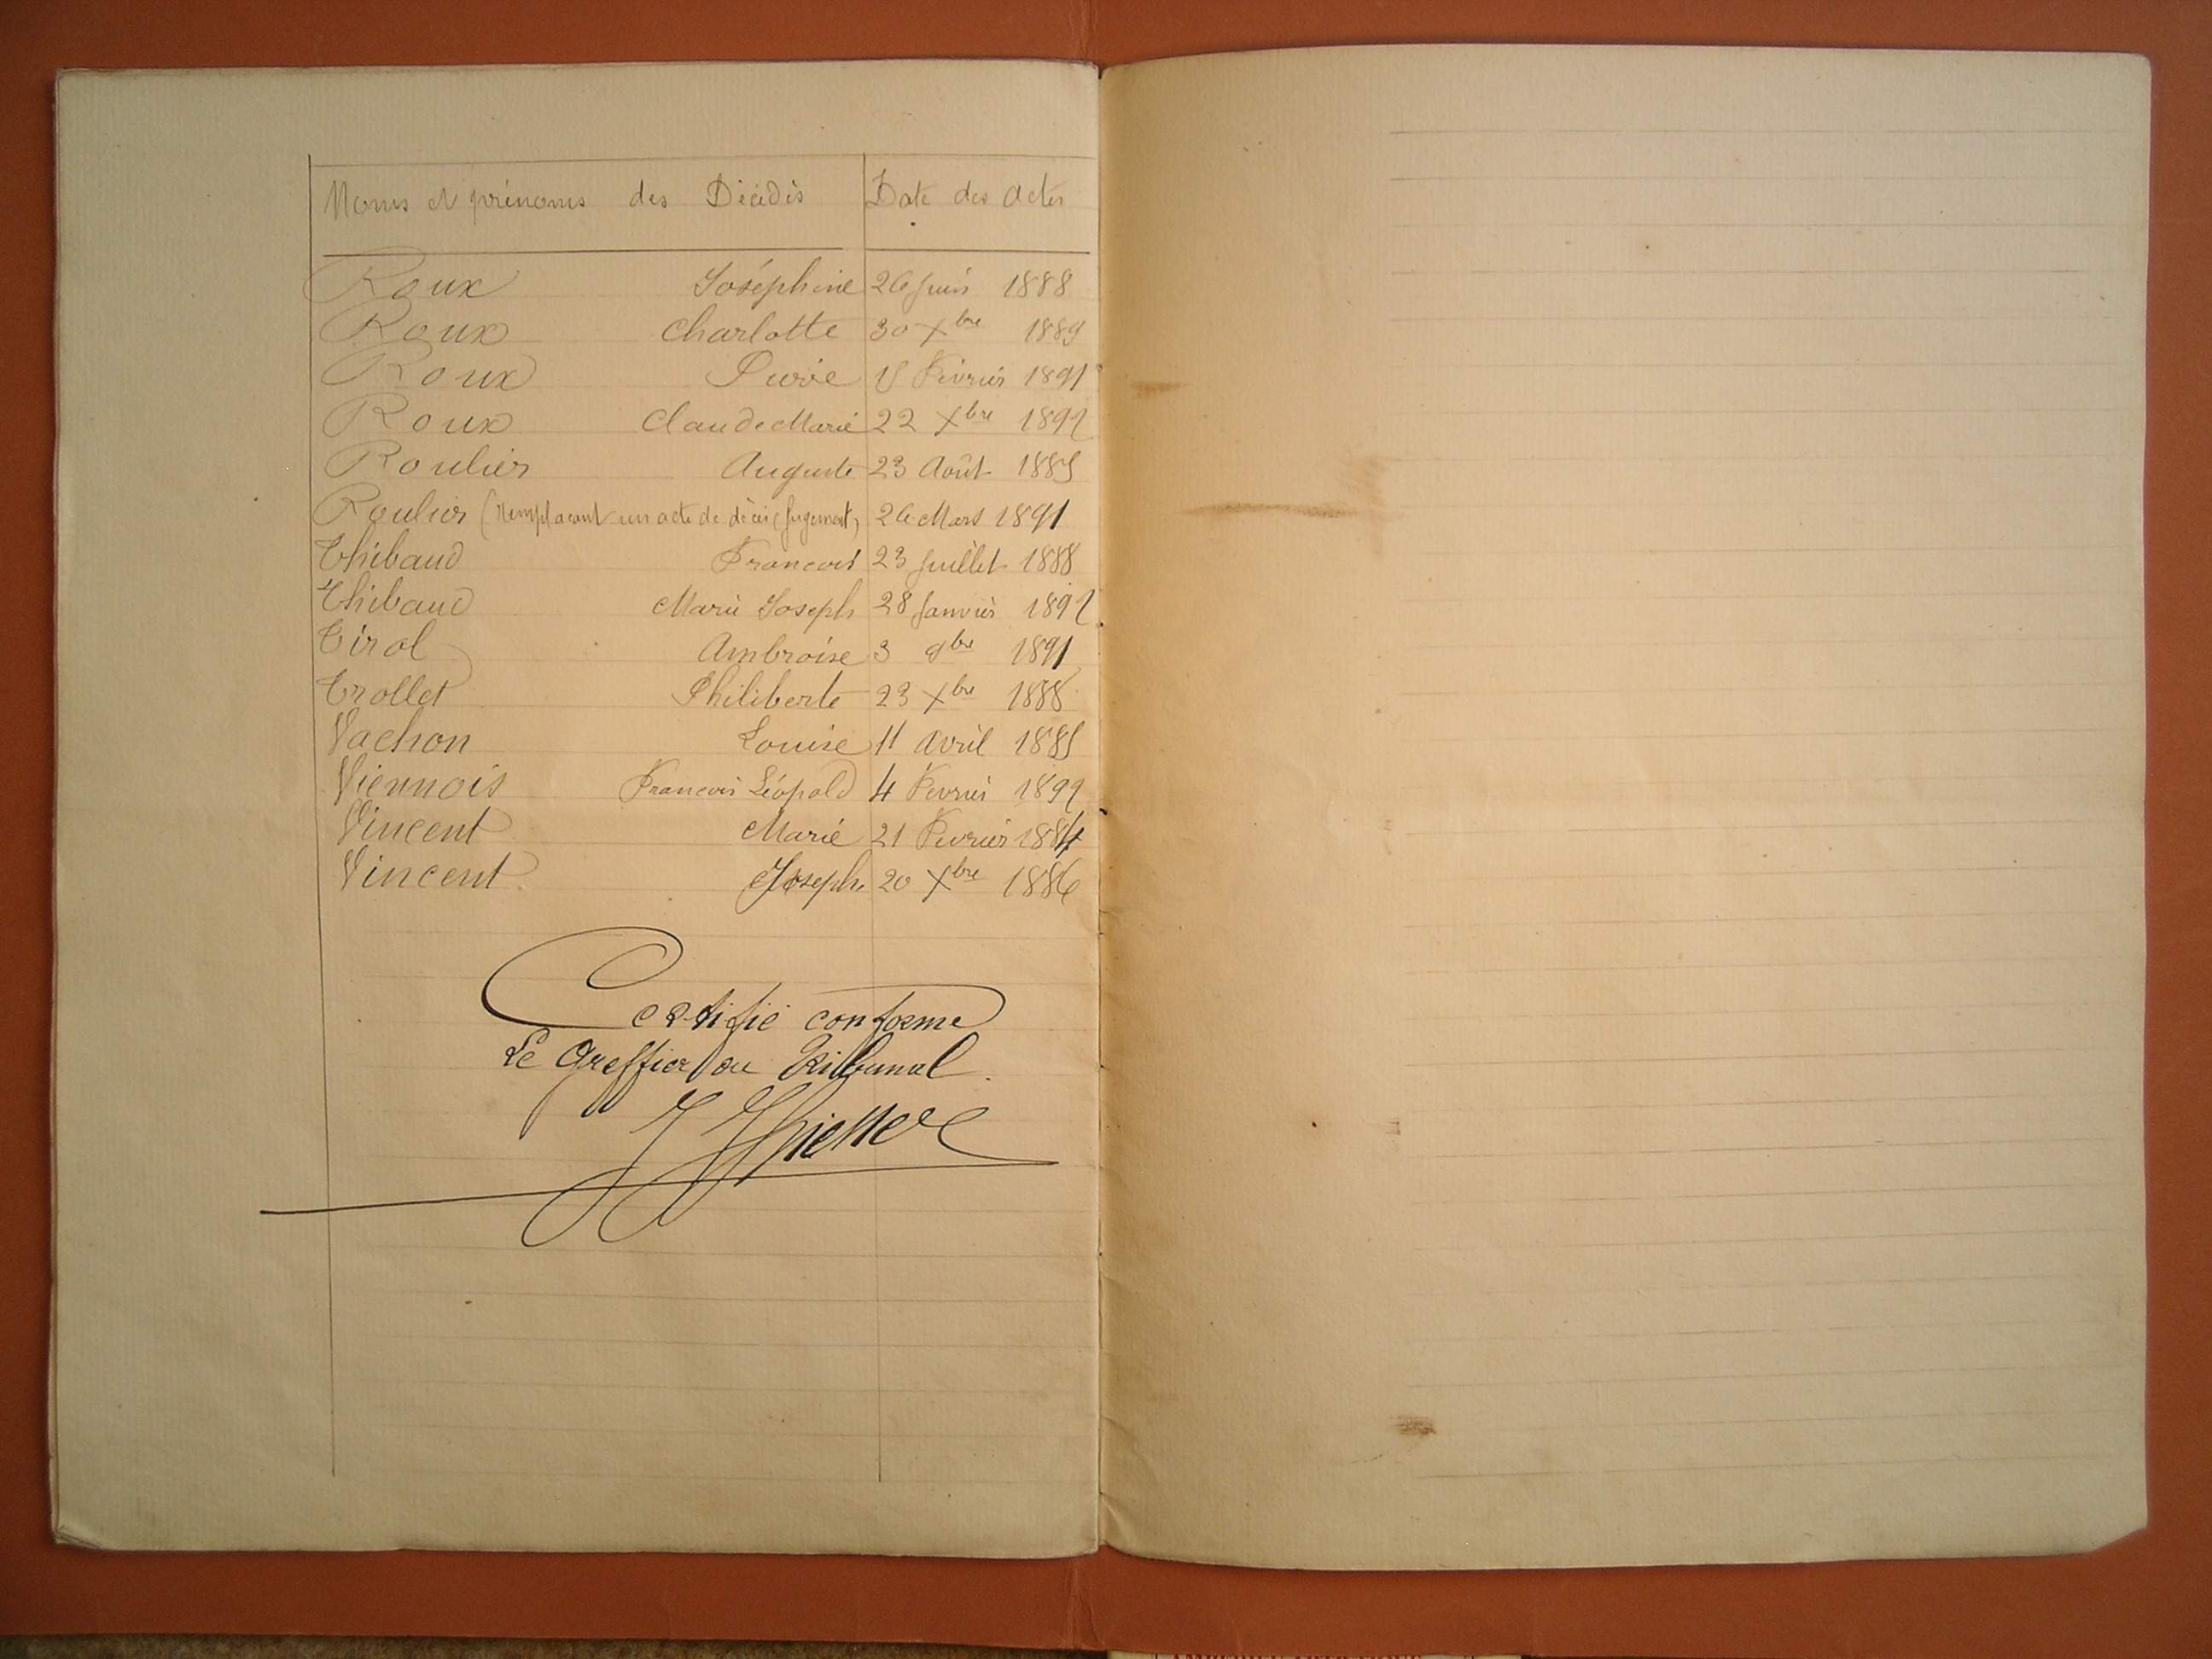 Noms et prénoms des Décédés Date des actes
Roux Joséphine 26 Juin 1888
Roux Charlotte 30 Xbre 1889
Roux Pierre 15 Février 1891
Roux Claude Marie 22 Xbre 1892
Roulier Auguste 23 Août 1885
Roulier (remplacant un acte de décès (jugement) 26 Mars 1891
Thibaud Francois 23 Juillet 1888
Thibaud Marie Joseph 28 Janvier 1892
Tirol Ambroise 3 9bre 1891
Trollet Philiberte 23 Xbre 1888
Vachon Louise 11 Avril 1885
Viennois Francois Léopold 4 Février 1892
Vincent Marie 21 Février 1884
Vincent Joseph 20 Xbre 1886
Certifié conforme
Le Greffier du Tribunal.